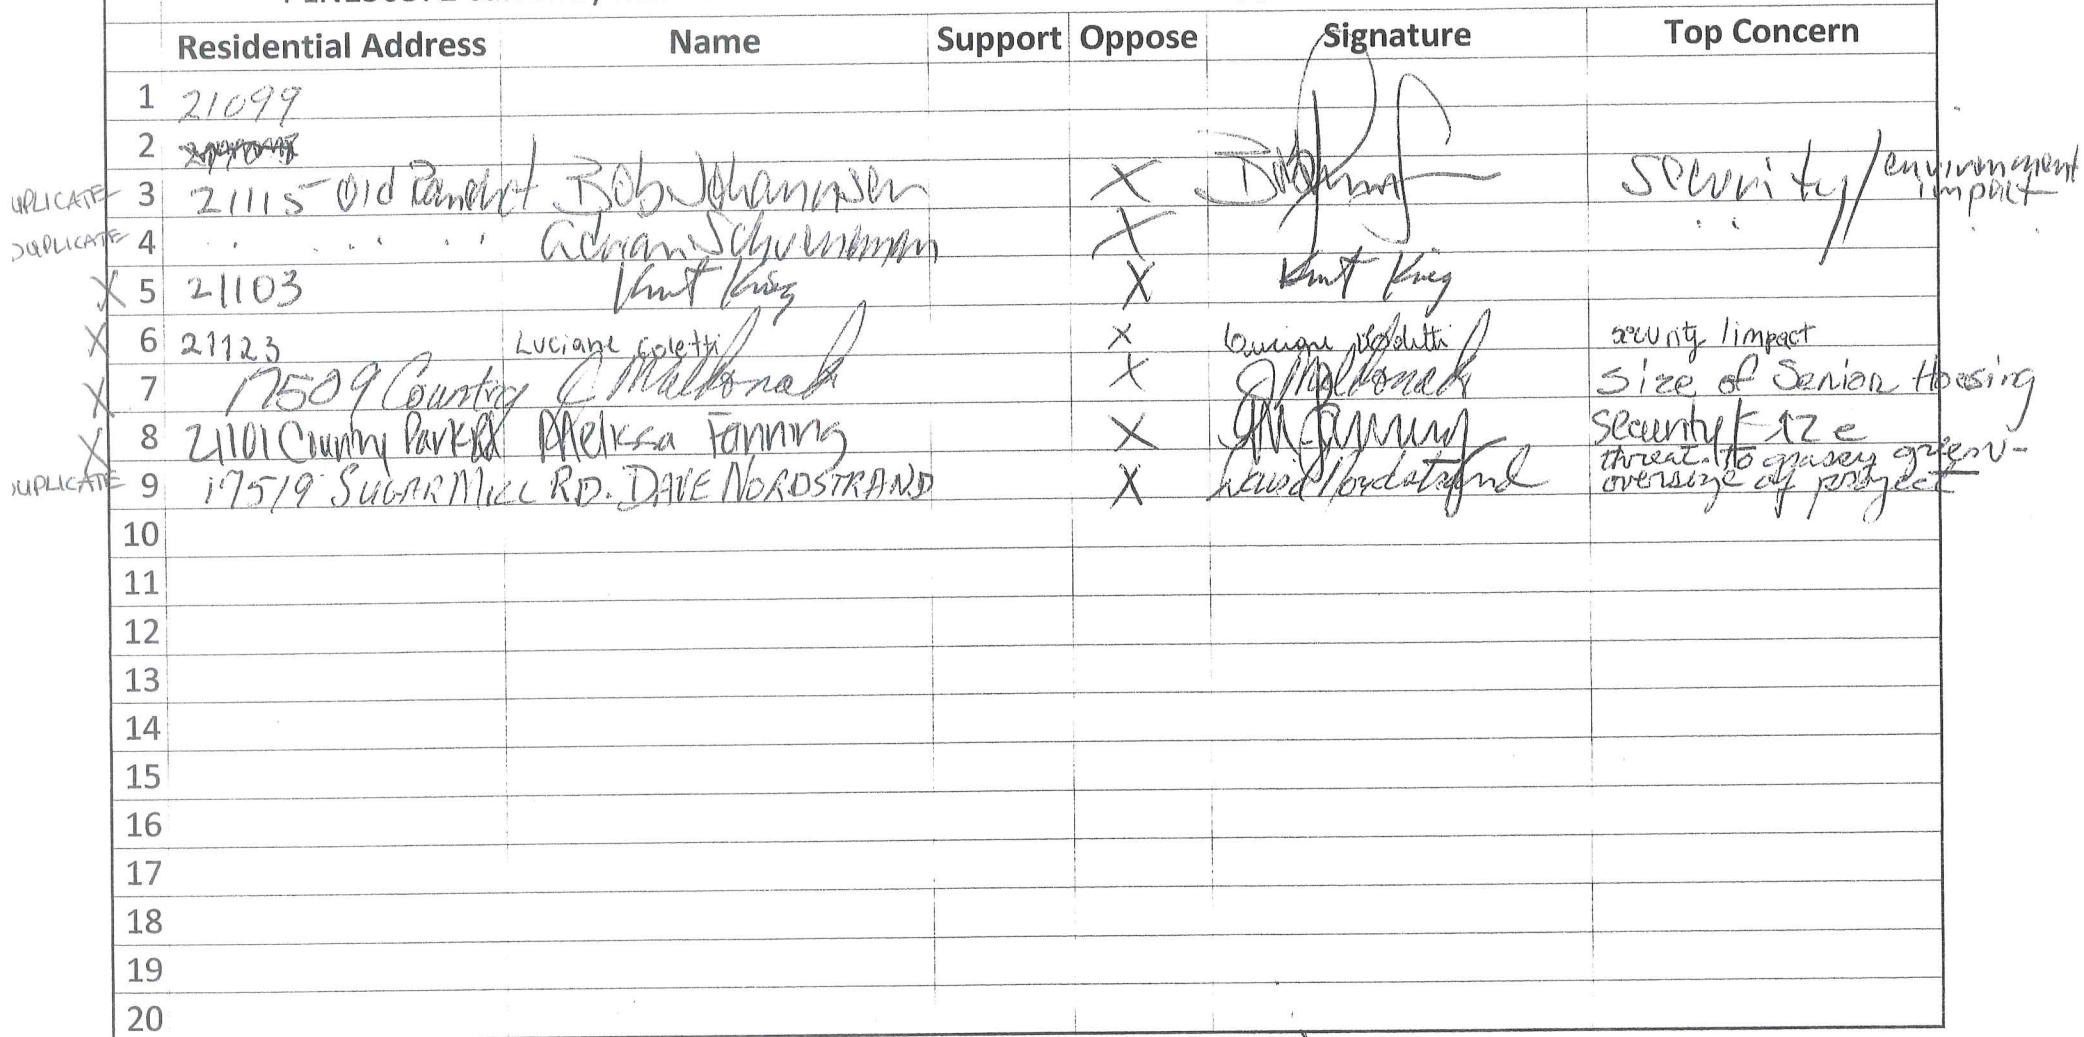 Residential Address Name Support Oppose Signature Top Concern
1 21099
2
UPLICATE 3 21115 Old Bob Johannsen X security/environment impact
DUPLICATE 4 " " " " Adrian X " "
X 5 21103 Kurt King X Kurt King
X 6 21123 Luciane Coletti X Luciane Coletti security/impact
X 7 17509 Country C Maldonado X C Maldonado size of Senior Housing
X 8 21101 Country Park Rd Melissa Fanning X Security
UPLICATE 9 17519 SUGAR MILL RD. DAVE NORDSTRAND X David Nordstrand threat to green-
oversize of project
10
11
12
13
14
15
16
17
18
19
20